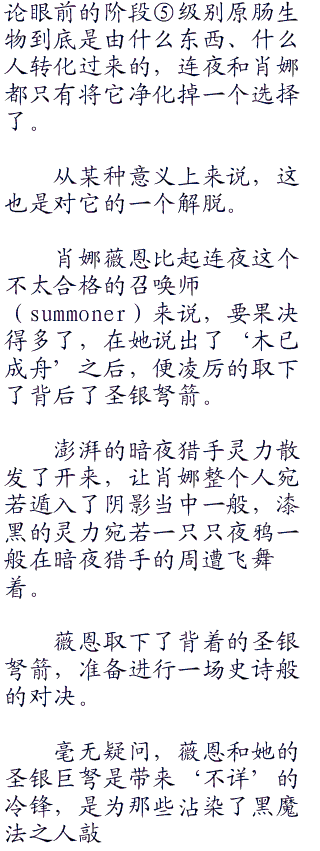 论眼前的阶段⑤级别原肠生
物到底是由什么东西、什么
人转化过来的，连夜和肖娜
都只有将它净化掉一个选择
了。
从某种意义上来说，这
也是对它的一个解脱。
肖娜薇恩比起连夜这个
不太合格的召唤师
（summoner）来说，要果决
得多了，在她说出了‘木已
成舟’之后，便凌厉的取下
了背后了圣银弩箭。
澎湃的暗夜猎手灵力散
发了开来，让肖娜整个人宛
若遁入了阴影当中一般，漆
黑的灵力宛若一只只夜鸦一
般在暗夜猎手的周遭飞舞
着。
薇恩取下了背着的圣银
弩箭，准备进行一场史诗般
的对决。
毫无疑问，薇恩和她的
圣银巨弩是带来‘不详’的
冷锋，是为那些沾染了黑魔
法之人敲